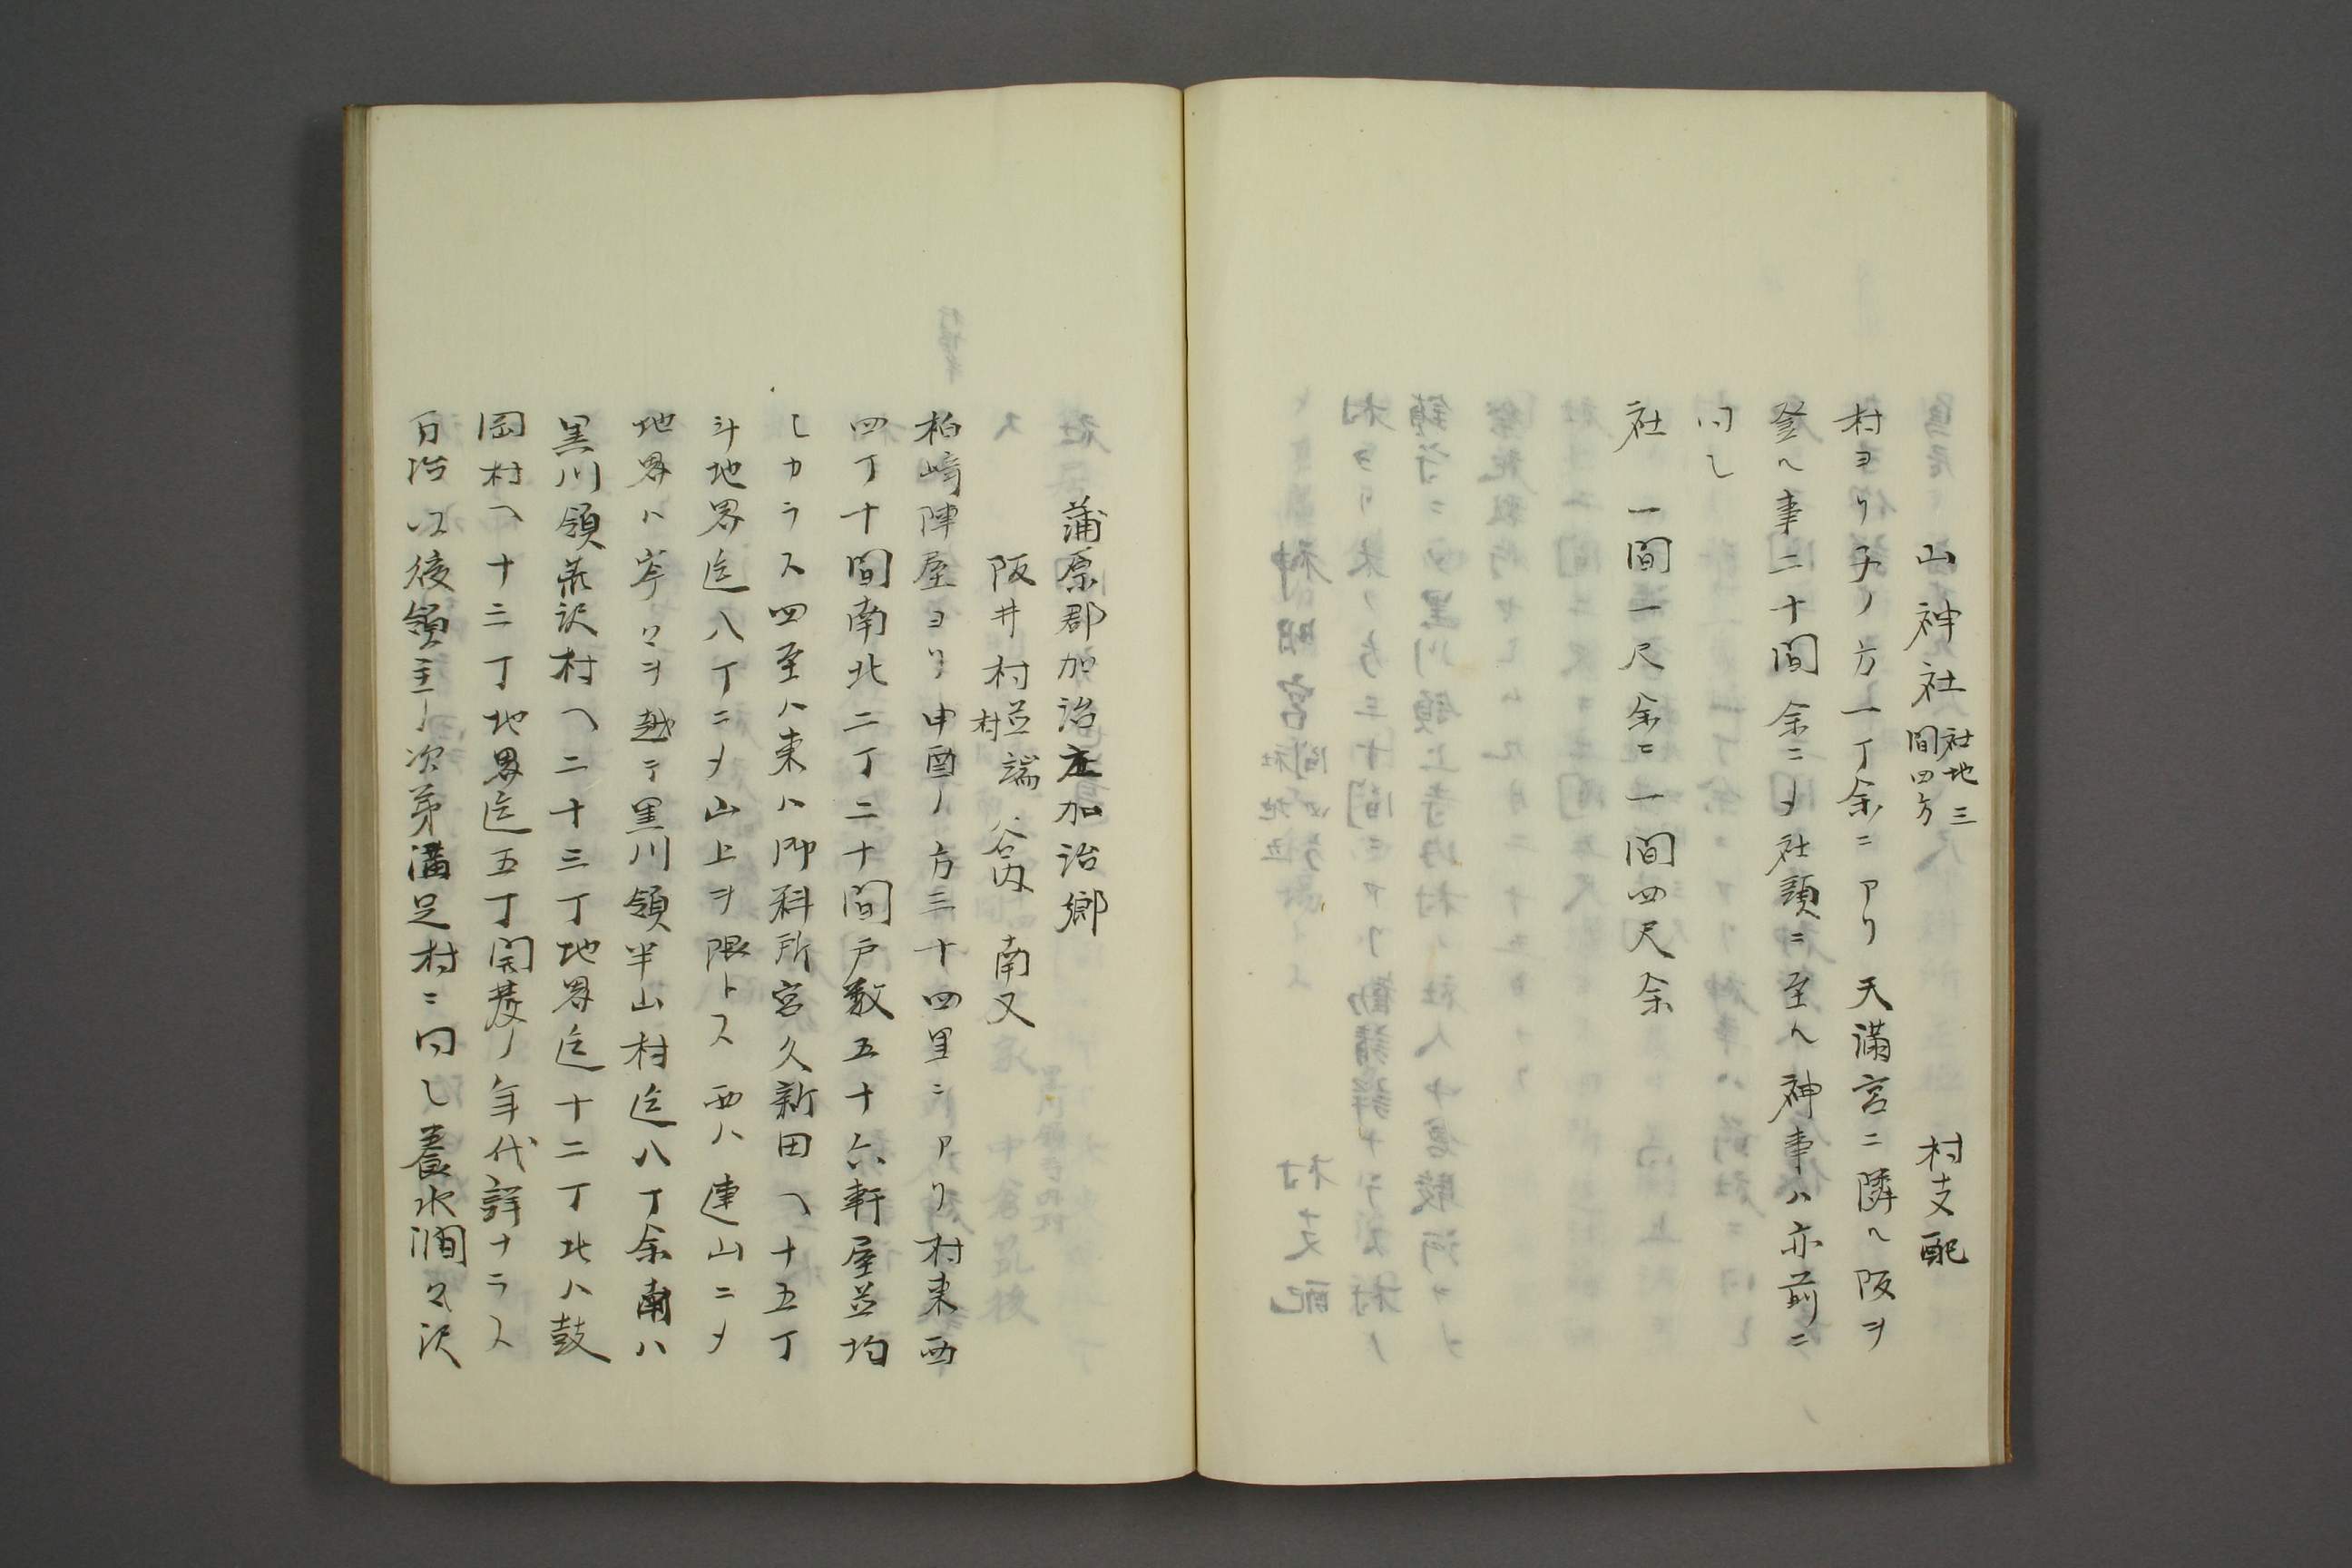 山神社 社地三間四方 村支配
村ヨリ子ノ方一丁余ニアリ天満宮ニ隣ヘ阪ヲ
登ル事二十間余ニメ社頭ニ至ル神事ハ亦前ニ
同し
社 一間一尺余ニ一間四尺余
蒲原郡加治庄加治郷
阪井村並村 端 谷内 南又
柏崎陣屋ヨリ申酉ノ方三十四里ニアリ村東西
四丁十間南北二丁二十間戸数五十六軒屋並均
しカラス四至ハ東ハ御料所宮久新田ヘ十五丁
斗地界迄八丁ニメ山上ヲ限トス西ハ連山ニメ
地界ハ岑々ヲ越テ黒川領半山村迄八丁余南ハ
黒川領荒沢村ヘ二十三丁地界迄十二丁北ハ鼓
岡村ヘ十三丁地界迄五丁開発ノ年代詳ナラス
万治以後領主ノ次第満足村ニ同し養水澗々沢